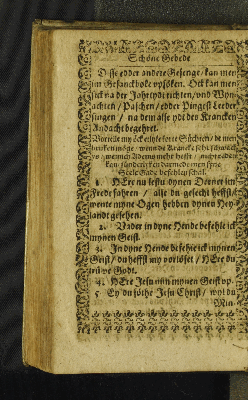 Schöne Gebede
Disse edder andere Gesenge / kan men
im Gesanckboke upsöken. Ock kan men
sick na der Jahrtydt richten / und Wyn-
achten / Paschen / edder Pingest Leeder
singen / na dem alse ydt des Krancken
Andacht begehret.
Seele Gade befehlen schal.
1. HEre nu lestu dynen Dener im
Frede fahren / alse du gesecht heffst /
wente myne Ogen hebben dynen Hey-
landt gesehen.
2. Vader in dyne Hende befehle ick
mynen Geist.
3. In dyne Hende befehle ick mynen
Geist / du heffst my vorlöset / HEre du
trüwe Godt.
4. HEre Jesu nim mynen Geist up.
5. Ey du söthe Jesu Christ / wyl du
Min-